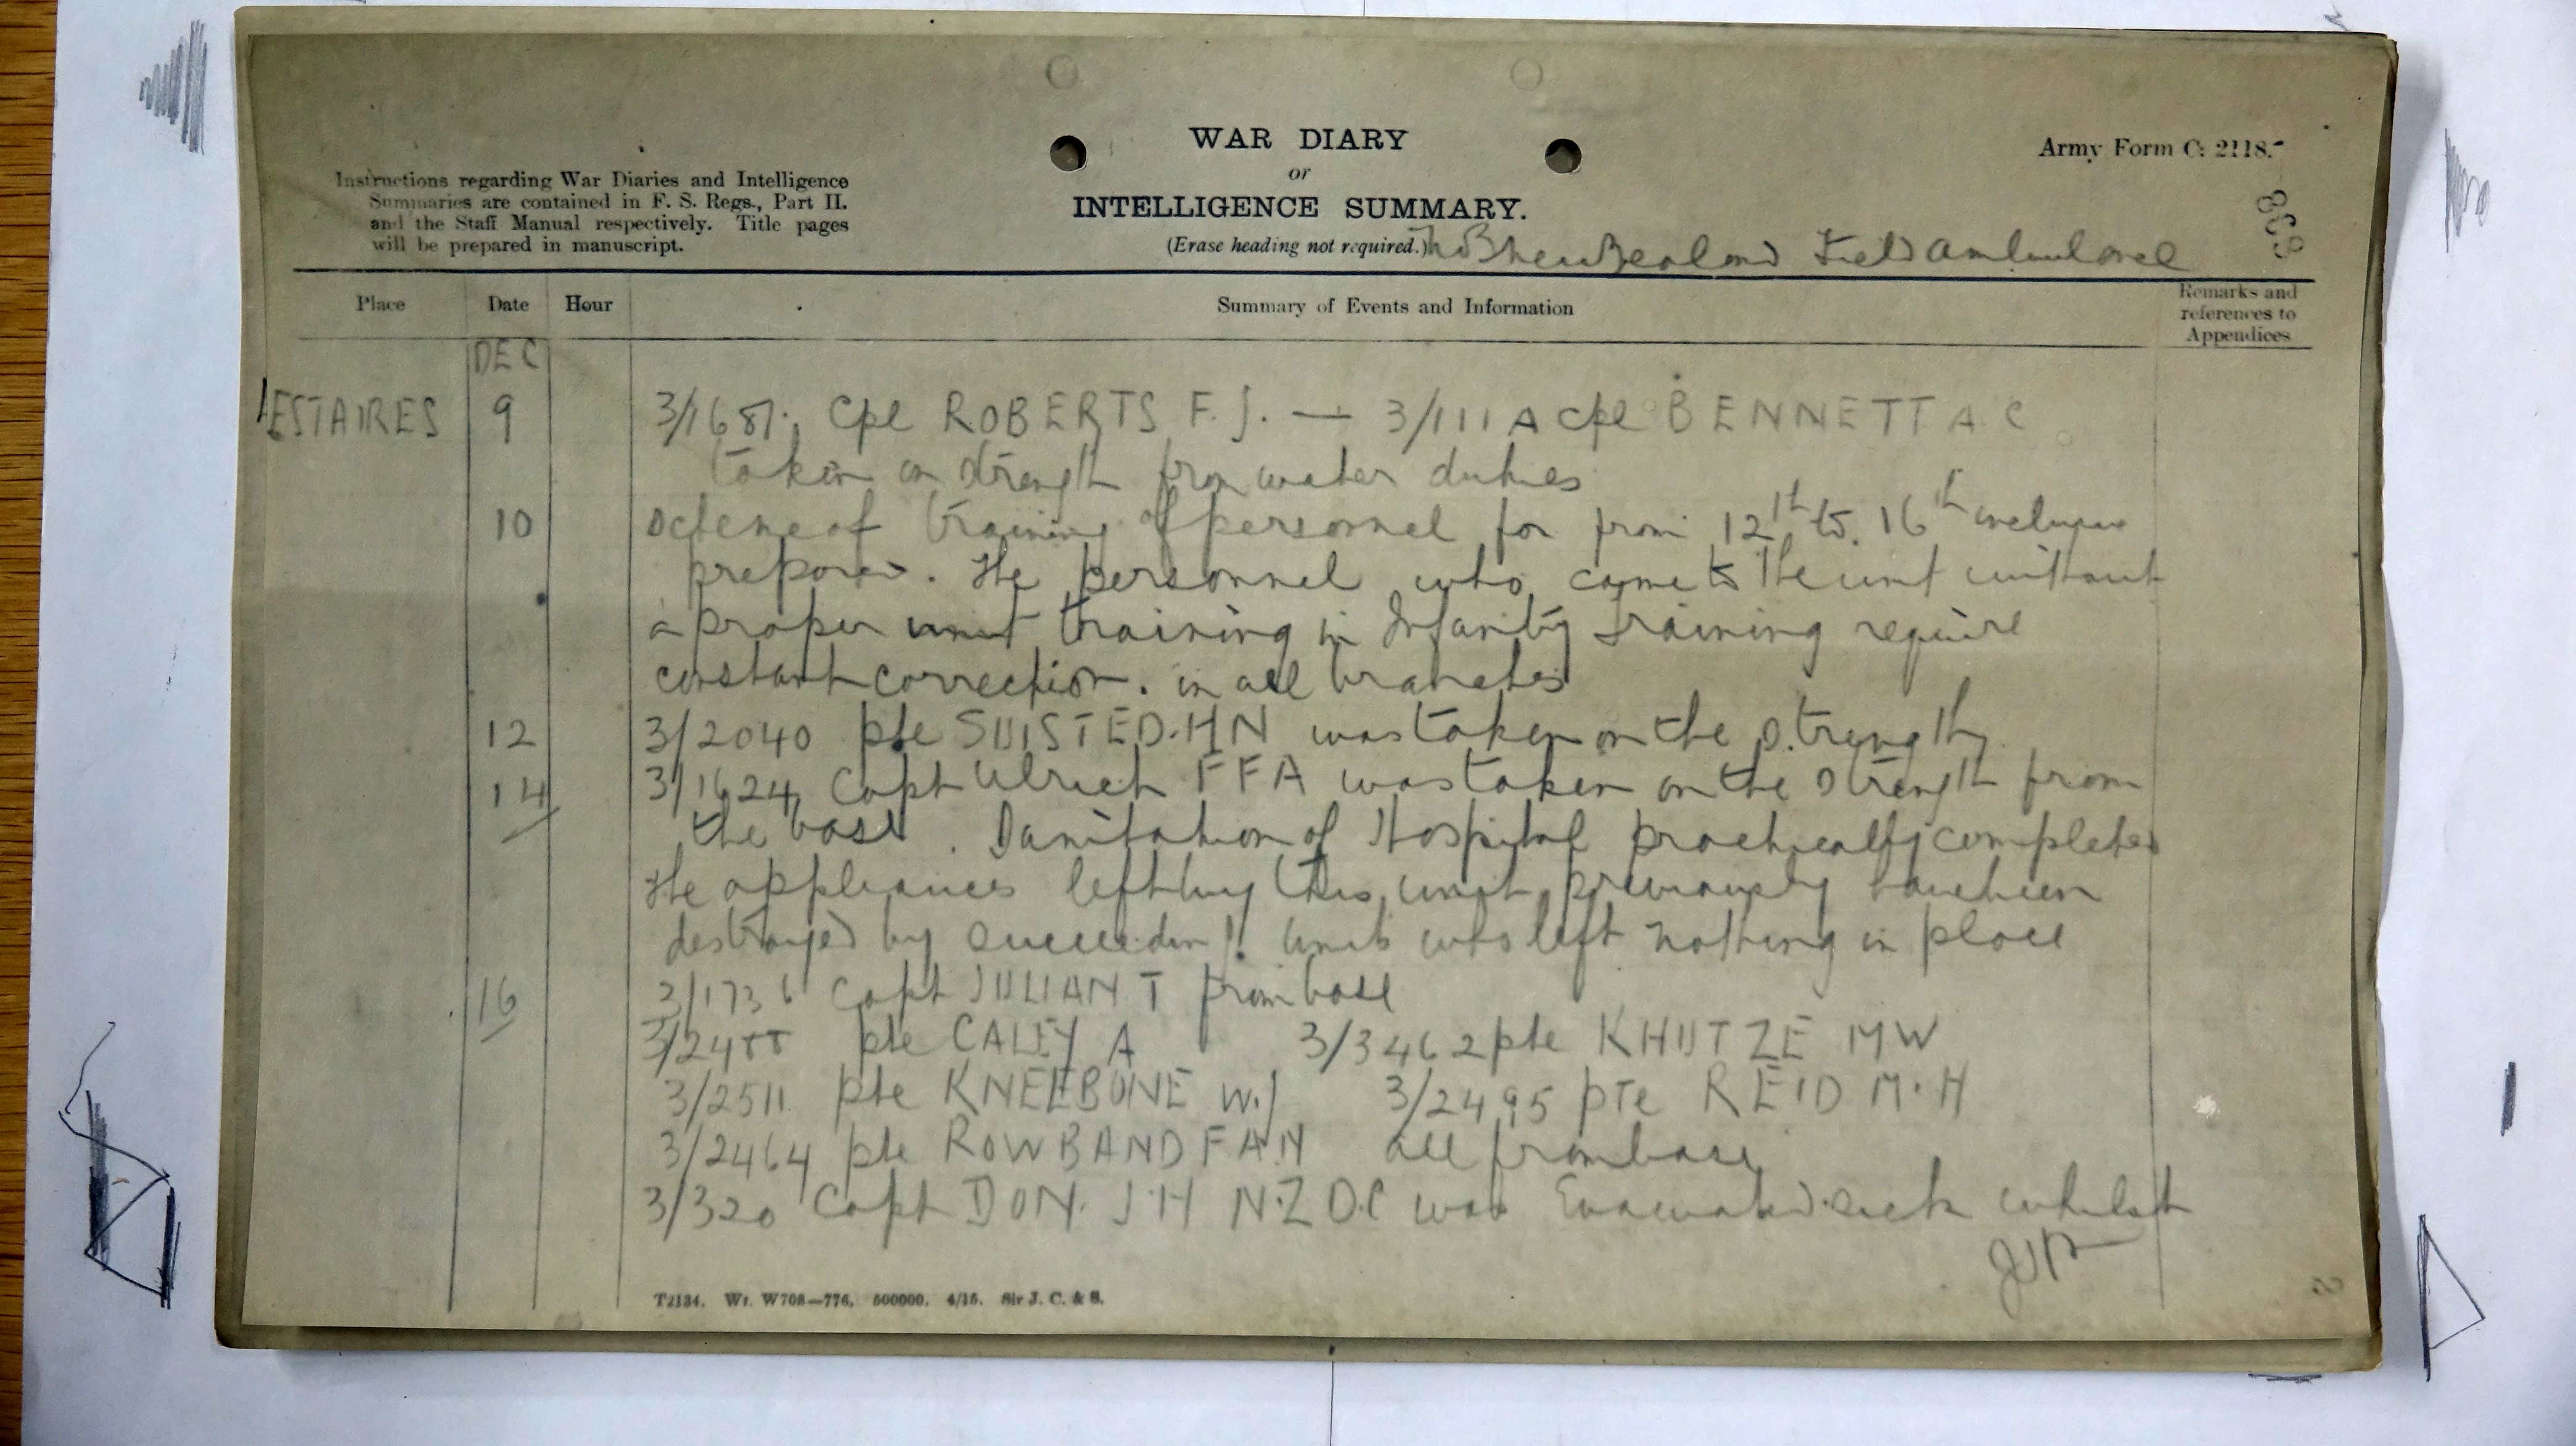 WAR DIARY
or
INTELLIGENCE SUMMARY.
(Erase heading not required.)
Army Form C. 2118.
Instructions regarding War Diaries and Intelligence
Summaries are contained in F. S. Regs., Part II.
and the Staff Manual respectively. Title pages
will be prepared in manuscript.
No 3 New Zealand Field Ambulance
838
Place Date Hour Summary of Events and Information Remarks and
references to
Appendices
DEC
ESTAIRES 9 3/1687. Cpl ROBERTS F. J. — 3/111A Cpl BENNETT A. C
taken on strength from water duties
10 Scheme of training of personnel for from 12th to 16th inclusive
prepared. The personnel who came to the unit without
a proper unit training in Infantry training require
constant correction. in all branches
12 3/2040 pte SUISTED. HN was taken on the strength
14 3/1624 Capt Ulrich FFA was taken on the strength from
the base. Sanitation of Hospital practically completed
The appliances left by this unit previously have been
destroyed by succeeding units who left nothing in place
16 3/1736 Capt JULIAN T from base
3/2488 pte CALEY A 3/3462 pte KHUTZE MW
3/2511 pte KNEEBONE W.J 3/2495 pte REID M. H
3/2464 pte ROWBAND F A. N all from base
3/320 Capt DON. J. H N.Z D.C was Evacuated sick whilst
T2134. Wt. W708—776. 500000. 4/15. Sir J. C. & S.